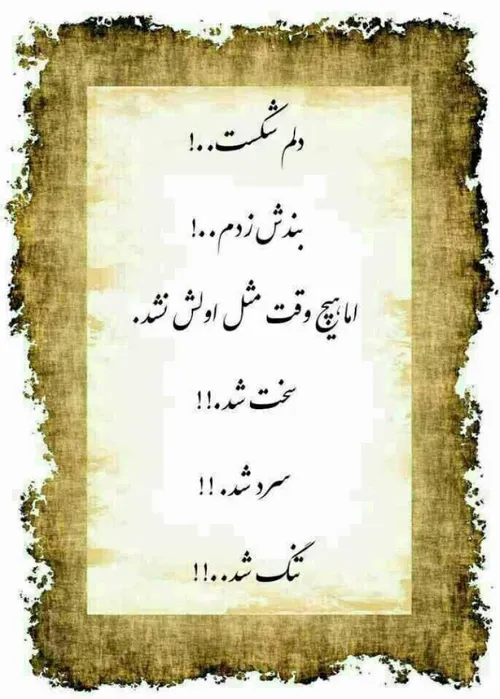 دلم شکست..!
بندش زدم..!
اما هیچ وقت مثل اولش نشد.
سخت شد.!!
سرد شد. !!
تنگ شد..!!